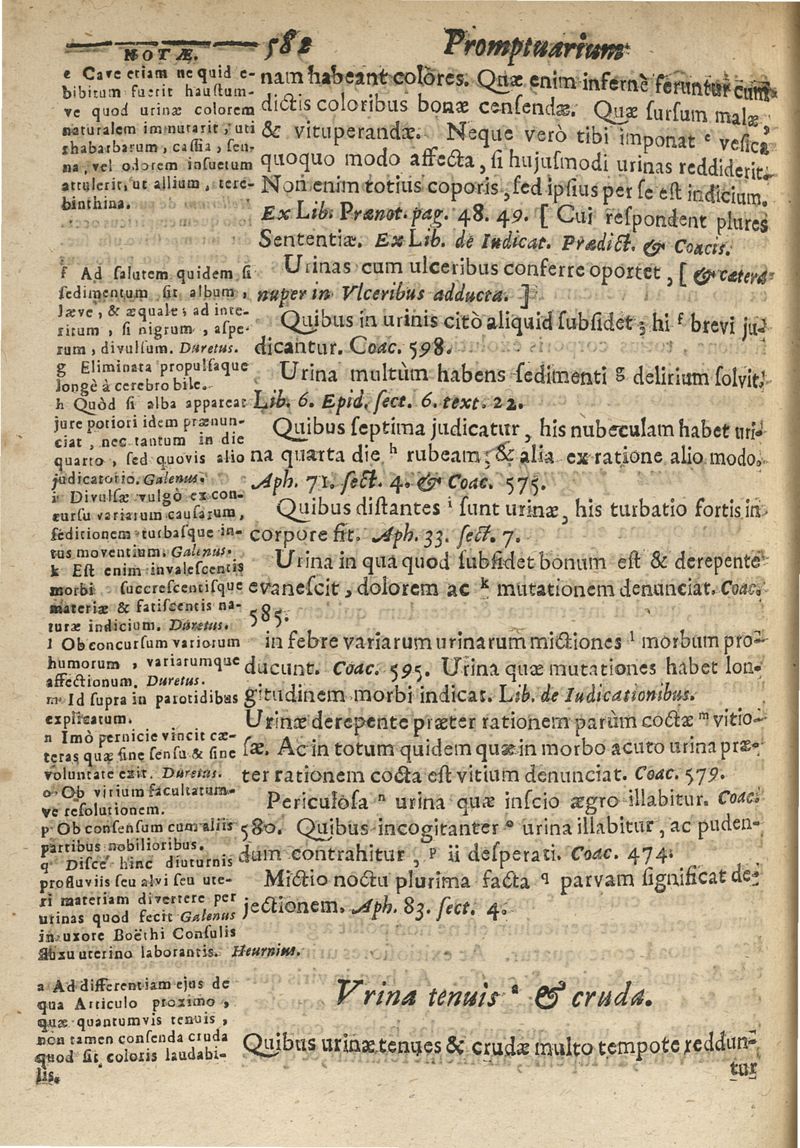 582 Promptuarium
nam habeant colores. Quæ enim infernè feruntur cum
dictis coloribus bonæ censendæ. Quæ sursum malæ
& vituperandæ. Neque verò tibi imponat e vesica
quoquo modo affecta, si hujusmodi urinas reddiderit.
Non enim totius coporis, sed ipsius per se est indicium.
Ex Lib. Prænot. pag. 48. 49. [ Cui respondent plures
Sententiæ. Ex Lib. de Iudicat. Prædict. & Coacis.
Urinas cum ulceribus conferre oportet, [ & cætera
nuper in Vlceribus adducta. ]
Quibus in urinis citò aliquid subsidet; hi f brevi ju-
dicantur. Coac. 598.
Urina multùm habens sedimenti g delirium solvit.
Lib. 6. Epid. sect. 6. text. 22.
Quibus septima judicatur, his nubeculam habet uri-
na quarta die h rubeam, & alia ex ratione alio modo.
Aph. 71. sect. 4. & Coac. 575.
Quibus distantes i sunt urinæ, his turbatio fortis in
corpore fit. Aph. 33. sect. 7.
Urina in qua quod subsidet bonum est & derepentè
evanescit, dolorem ac k mutationem denunciat. Coac.
585.
in febre variarum urinarum mictiones l morbum pro-
ducunt. Coac. 595. Urina quæ mutationes habet lon-
gitudinem morbi indicat. Lib. de Iudicationibus.
Urinæ derepente præter rationem parùm coctæ m vitio-
sæ. Ac in totum quidem quæ in morbo acuto urina præ-
ter rationem cocta est vitium denunciat. Coac. 579.
Periculosa n urina quæ inscio ægro illabitur. Coac.
580. Quibus incogitanter o urina illabitur, ac puden-
dum contrahitur, p ii desperati. Coac. 474.
Mictio noctu plurima facta q parvam significat de-
jectionem. Aph. 83. sect. 4.
Vrina tenuis a & cruda.
Quibus urinæ tenues & crudæ multo tempote reddun-
tur
NOTÆ.
e Cave etiam ne quid e-
bibitum fuerit haustum-
ve quod urinæ colorem
naturalem immutarit, uti
rhabarbarum, cassia, sen-
na, vel odorem insuetum
attulerit, ut allium, tere-
binthina.
f Ad salutem quidem si
sedimentum sit album,
læve, & æquale; ad inte-
ritum, si nigrum, aspe-
rum, divulsum. Duretus.
g Eliminata propulsaque
longè à cerebro bile.
h Quòd si alba appareat
jure potiori idem prænun-
ciat, nec tantum in die
quarto, sed quovis alio
judicatorio. Galenus.
i Divulsæ vulgò ex con-
cursu variarum causarum,
seditionem turbasque in-
tus moventium. Galenus.
k Est enim invalescentis
morbi succrescentisque
materiæ & fatiscentis na-
turæ indicium. Duretus.
l Ob concursum variorum
humorum, variarumque
affectionum. Duretus.
m Id supra in parotidibus
explicatum.
n Imò pernicie vincit cæ-
teras quæ sine sensu & sine
voluntate exit. Duretus.
o Ob virium facultatum-
ve resolutionem.
p Ob consensum cum aliis
partibus nobilioribus.
q Disce hinc diuturnis
profluviis seu alvi seu ute-
ri materiam divertere per
urinas quod fecit Galenus
in uxore Boëthi Consulis
fluxu uterino laborantis. Heurnius.
a Ad differentiam ejus de
qua Articulo proximo,
quæ quantumvis tenuis,
non tamen consenda cruda
quod sit coloris laudabi-
lis.